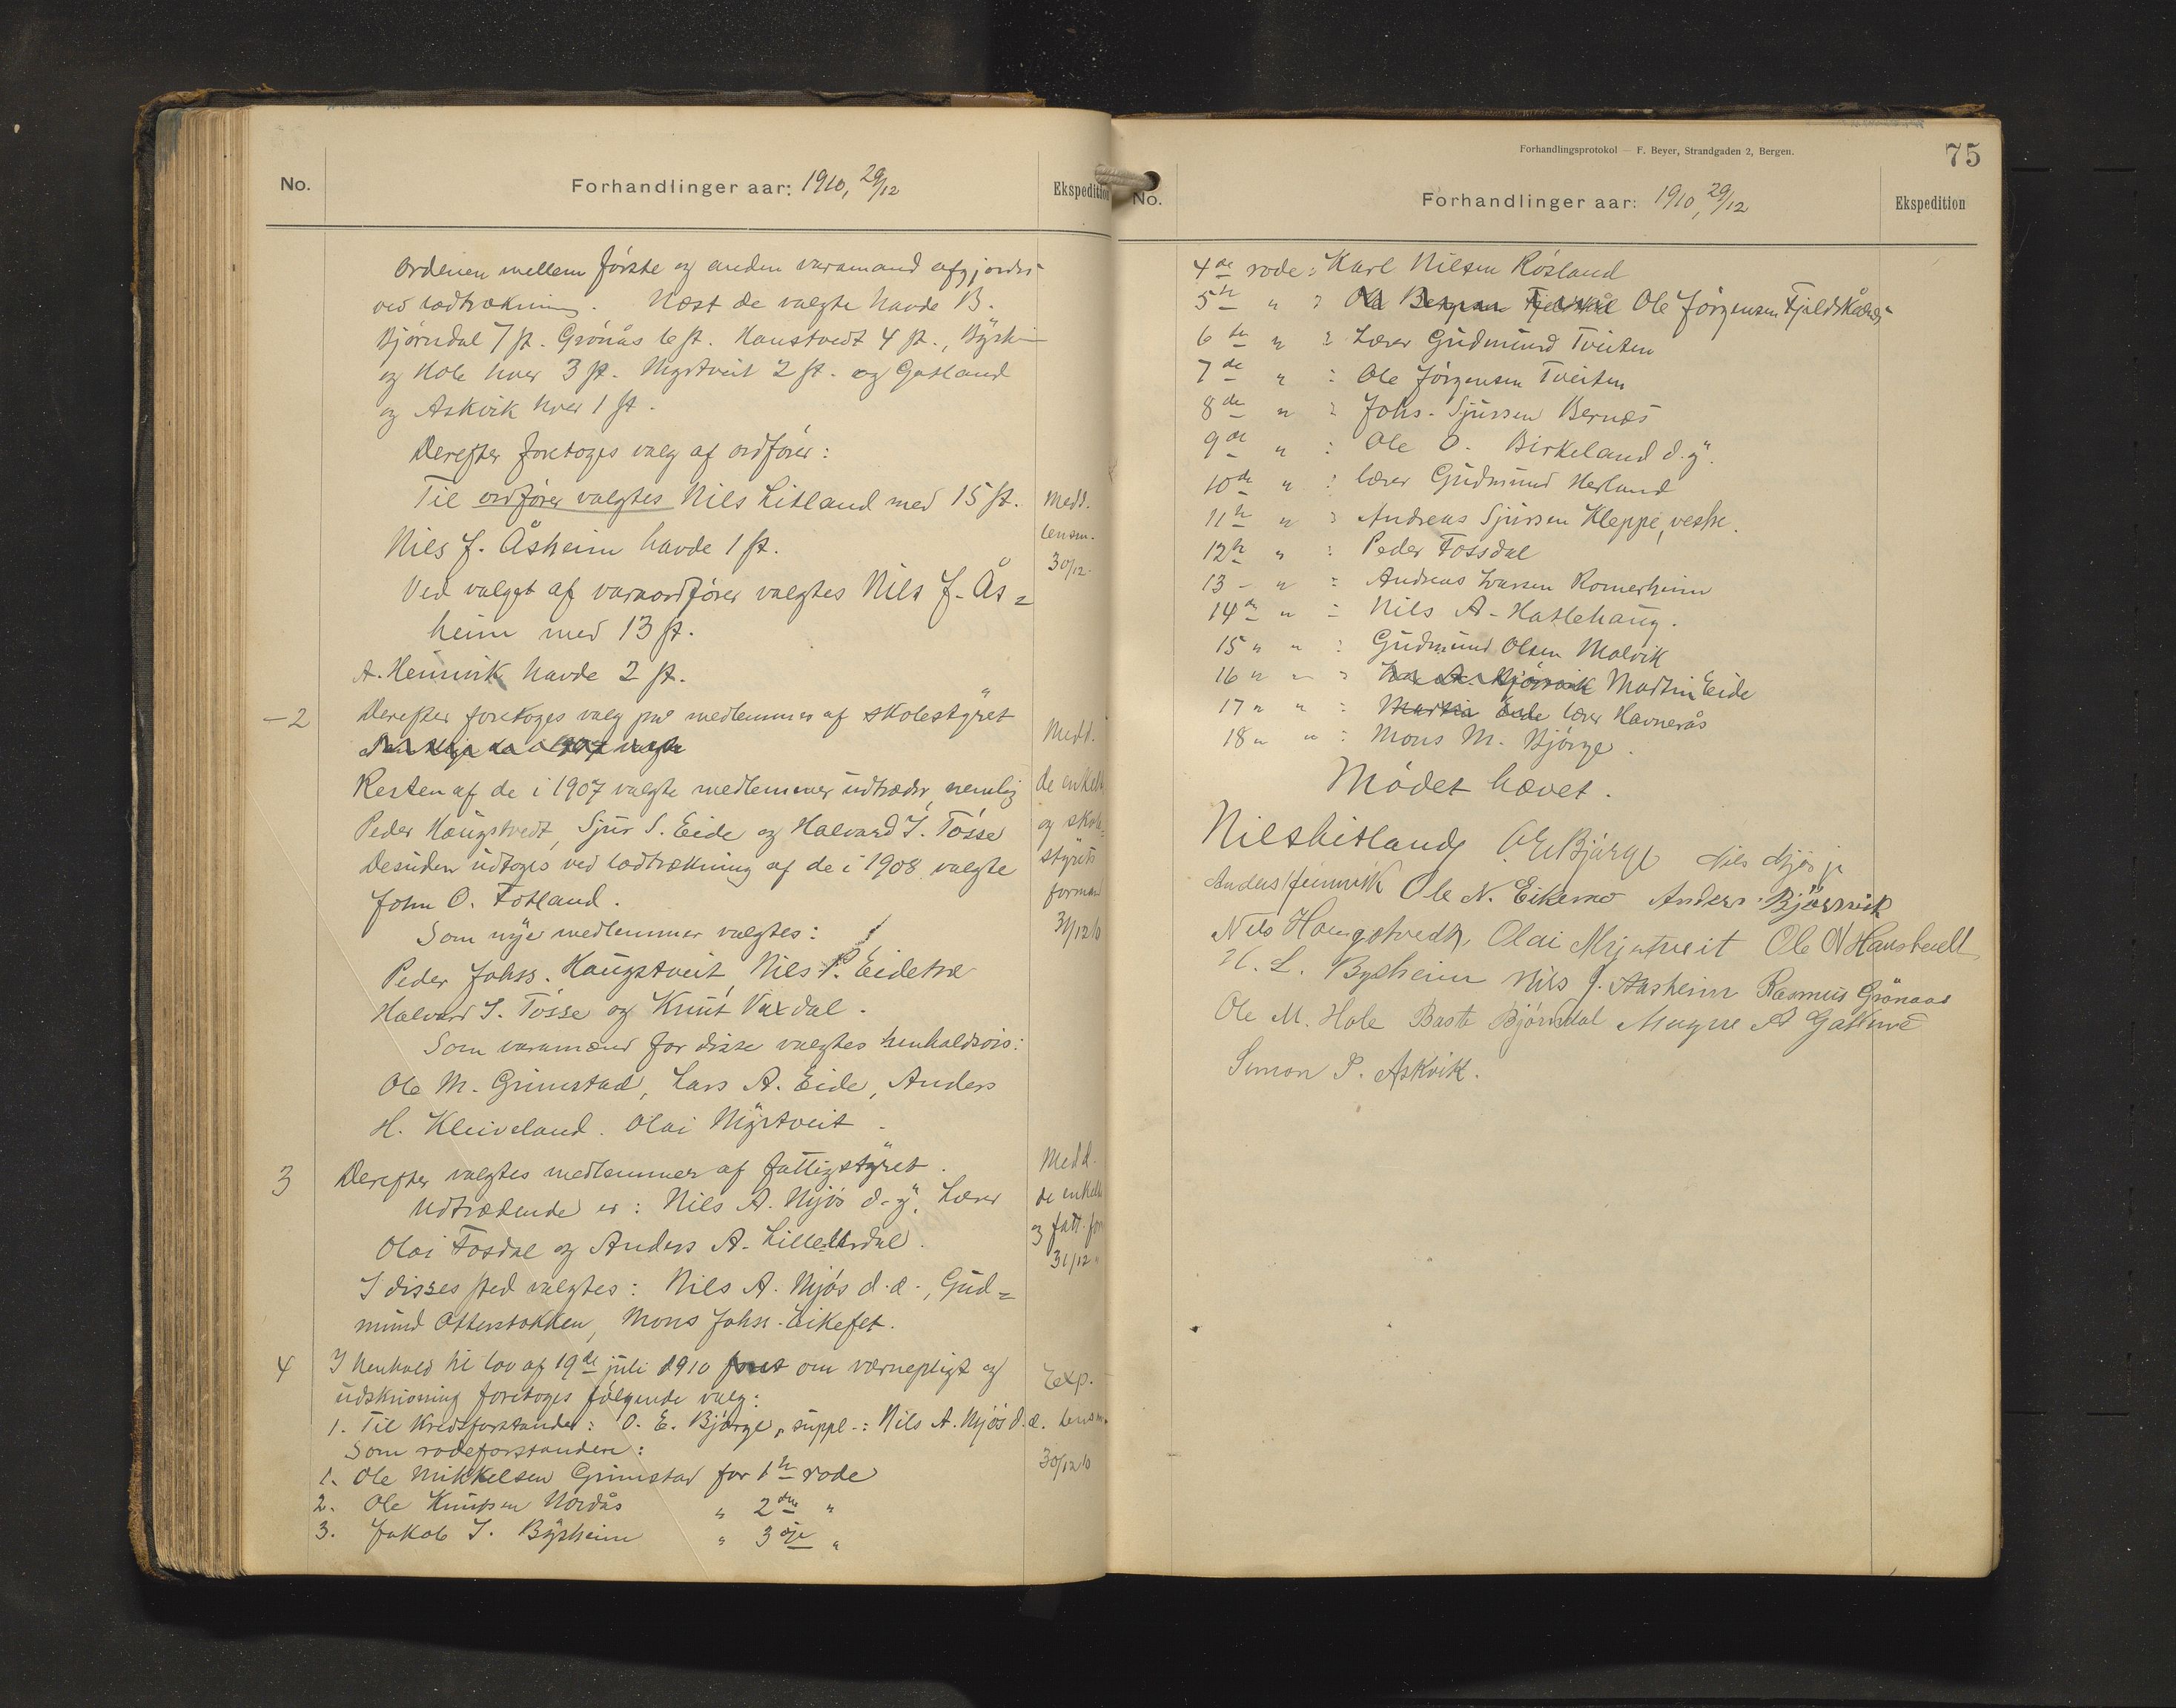 No.
Forhandlinger aar: 1910, 29/12
Ekspedition
Ordenen mellem første og anden varamand afgjordes
ved lodtrækning. Næst de valgte havde B.
Bjørndal 7 st. Grönås 6 st. Haustvedt 4 st., Bÿsh-
og Hole hver 3 st. Mÿrtveit 2 st. og Gatland
og Askvik hver 1 st.
Derefter foretoges valg af ordfører:
Til ordfører valgtes Nils Litland med 15 st.
Medd.
Nils J. Åsheim havde 1 st.
lensm.
30/12.
Ved valget af varaordfører valgtes Nils J. Ås=
heim med 13 st.
A. Heimvik havde 2 st.
-2
Derefter foretoges valg på medlemmer af skolestÿret
Medd.
Resten af de i 1907 valgte medlemmer udtræder, nemlig
de enkelte
Peder Haugstvedt, Sjur S. Eide og Halvard I. Tøsse
og skole=
Desuden udtoges ved lodtrækning af de i 1908 valgte
stÿrets
John O. Fotland.
formand
Som nÿe medlemmer valgtes:
31/12 10
Peder Johss. Haugstveit, Nils P. Eidetræ
Halvard I. Tøsse og Knut Vaxdal.
Som varamænd for disse valgtes henholdsvis:
Ole M. Grimstad, Lars A. Eide, Anders
H. Kleiveland. Olai Mÿrtveit.
3
Derefter valgtes medlemmer af fattigstÿret.
Medd.
Udtrædende er: Nils A. Mjös d. ÿ. Lærer
de enkelte
Olai Fosdal og Anders A. Lilleurdal.
og fatt. for
31/12 "
I disses sted valgtes: Nils A. Mjös d. æ., Gud=
mund Otterstokken, Mons Johs. Eikefet.
4
I henhold til lov af 19de juli 1910 om værnepligt og
Exp.
udskrivning foretoges følgende valg:
1. Til Kredsforstander: O. E. Bjørge, suppl.: Nils A. Mjös d. æ.
lensm.
Som rodeforstandere:
30/12 10
1. Ole Mikkelsen Grimstad for 1te rode
2. Ole Knutsen Nordås " 2den "
3. Jakob I. Bÿsheim " 3dje "
Forhandlingsprotokol — F. Beyer, Strandgaden 2, Bergen.
75
No.
Forhandlinger aar: 1910, 29/12
Ekspedition
4de rode: Karl Nilsen Rösland
5te " : Ole Jörgensen Fjeldskålnes
6te " : Lærer Gudmund Tveiten
7de " : Ole Jörgensen Tveiten
8de " : Johs. Sjursen Bernes
9de " : Ole O. Birkeland d. ÿ.
10de " : lærer Gudmund Herland
11te " : Andreas Sjursen Kleppe, vestre.
12te " : Peder Fossdal
13 - " : Andreas Ivarsen Romerheim
14de " : Nils A. Hatlehaug.
15 " " : Gudmund Olsen Molvik
16 " " : Martin Eide
17 " " : lærer Havnerås
18 " " : Mons M. Bjørge.
Mødet hævet.
Nils Litland O E Bjørge Nils Mjøs jr
Anders Heimvik Ole N. Eikemo Anders Bjørnvik
Nils Haugstvedt, Olai Mjrtveit Ole N Haustvedt
H. L. Bysheim Nils J. Aasheim Rasmus Grönaas
Ole M. Hole Baste Björndal Magne A
Simon P. Askvik.